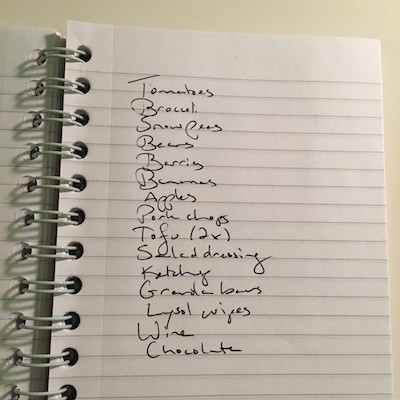 Tomatoes
Broccoli
Snow Peas
Beans
Berries
Bananas
Apples
Pork chops
Tofu (2x)
Salad dressing
Ketchup
Granola bars
Lysol wipes
Wine
Chocolate